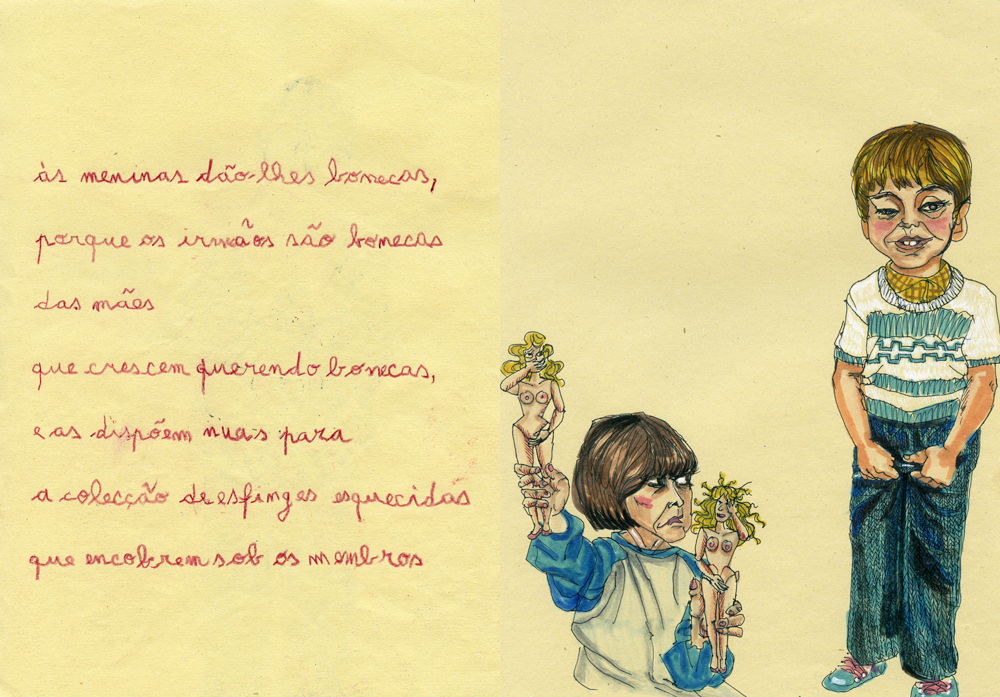 às meninas dão-lhes bonecas,
porque os irmãos são bonecas
das mães
que crescem querendo bonecas,
e as dispõem nuas para
a colecção de esfinges esquecidas
que encobrem sob os membros